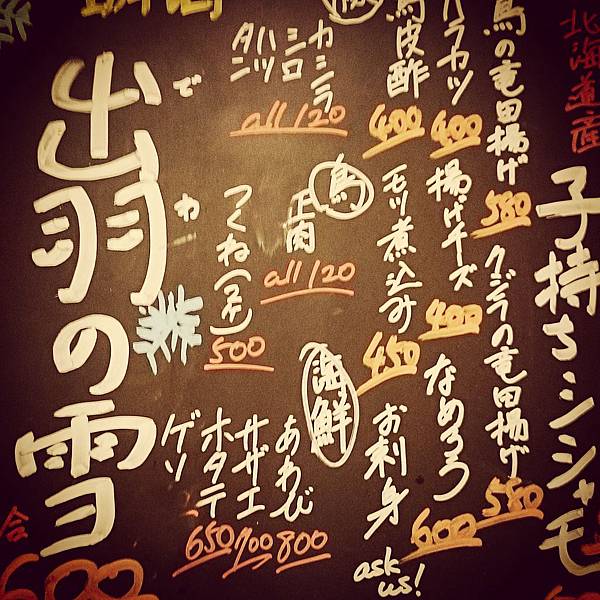 北海道産
子持ちシシャモ
鳥の竜田揚げ
580
クジラの竜田揚げ
580
ハラカツ
400
揚げチーズ
400
なめろう
600
鳥皮酢
400
モツ煮込み
450
お刺身
ask us!
カシラ
シロ
ハツ
タン
all 120
鳥
正肉
all 120
つくね
500
海鮮
あわび
800
サザエ
700
ホタテ
650
ゲソ
でわ
出羽の雪
合
600